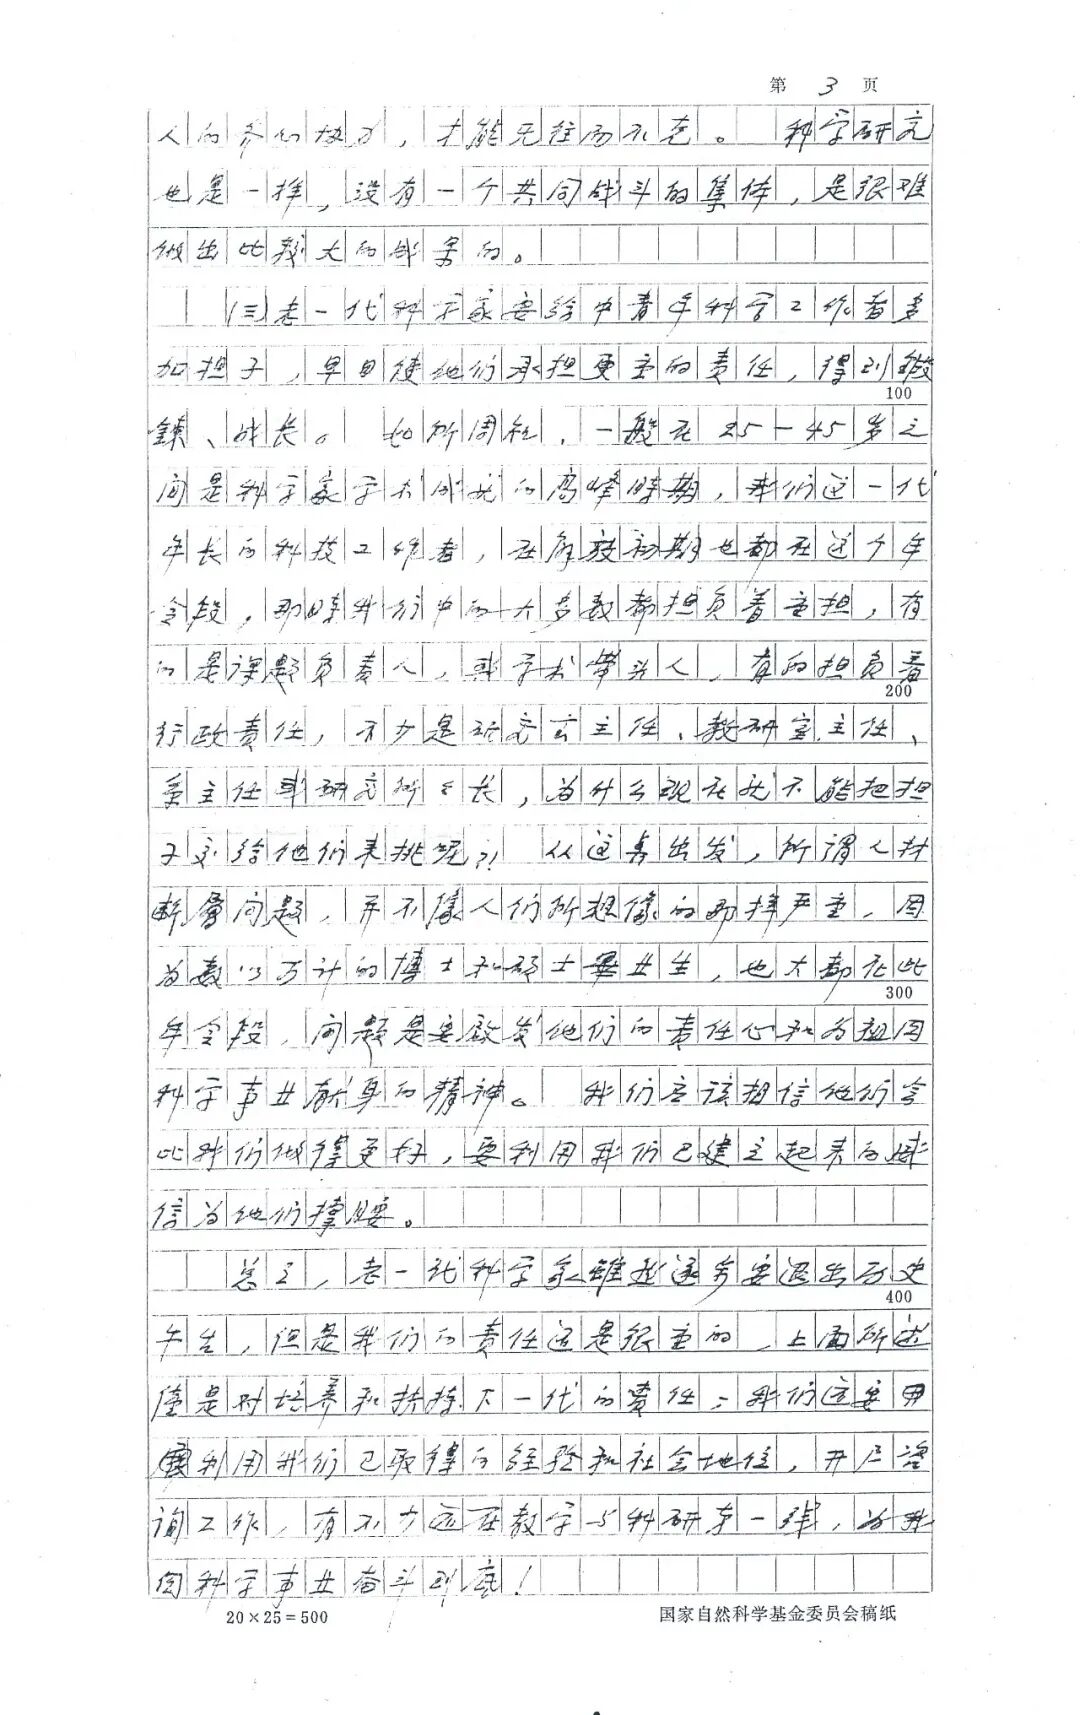 第 3 页
人的齐心协力，才能无往而不克。科学研究
也是一样，没有一个共同战斗的集体，是很难
做出比较大的成果的。
(三)老一代科学家要给中青年科学工作者多
加担子，早日使他们承担更重的责任，得到锻
100
鍊、成长。如所周知，一般在25—45岁之
间是科学家学术成就的高峰時期，我们这一代
年长的科技工作者，在解放初期也都在这个年
令段，那時我们中的大多数都担负着重担，有
的是课题负责人，或学术带头人，有的担负着
200
行政责任，不少是研究室主任、教研室主任、
系主任或研究所所长，为什么现在就不能把担
子交给他们来挑呢?! 从这点出发，所谓人材
断层问题，并不像人们所想像的那样严重，因
为数以万计的博士和硕士毕业生，也大都在此
300
年令段，问题是要启发他们的责任心和为祖国
科学事业献身的精神。我们应该相信他们会
比我们做得更好，要利用我们已建立起来的威
信为他们撑腰。
总之，老一代科学家虽然逐步要退出历史
400
午台，但是我们的责任还是很重的，上面所述
僅是对培养和扶持下一代的责任；我们还要用
利用我们已取得的经验和社会地位，开展谘
询工作，有不少还在教学与科研第一线，为我
国科学事业奋斗到底！
20×25=500
国家自然科学基金委员会稿纸